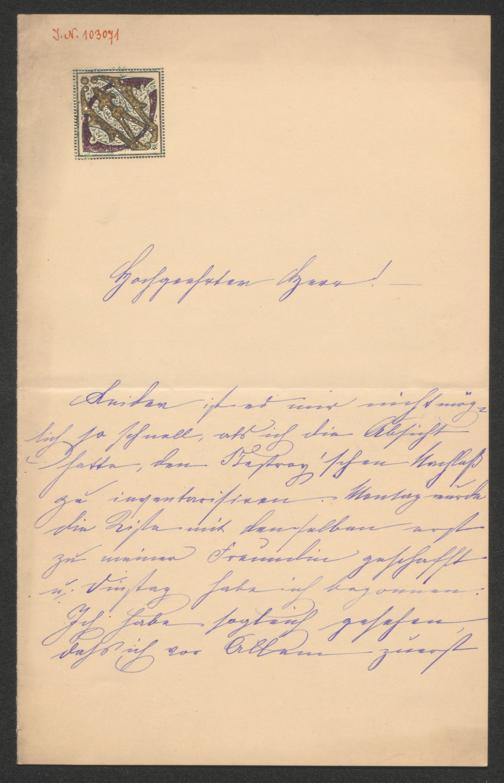 J.N. 103071
Hochgeehrter Herr! —
Leider ist es mir nicht mög-
lich so schnell, als ich die Absicht
hatte, den Nestroy'schen Nachlaß
zu inventarisiren. Montag wurde
die Kiste mit demselben erst
zu meiner Freundin geschafft
u. Dinstag habe ich begonnen.
Ich habe sogleich gesehen,
daß ich vor Allem zuerst